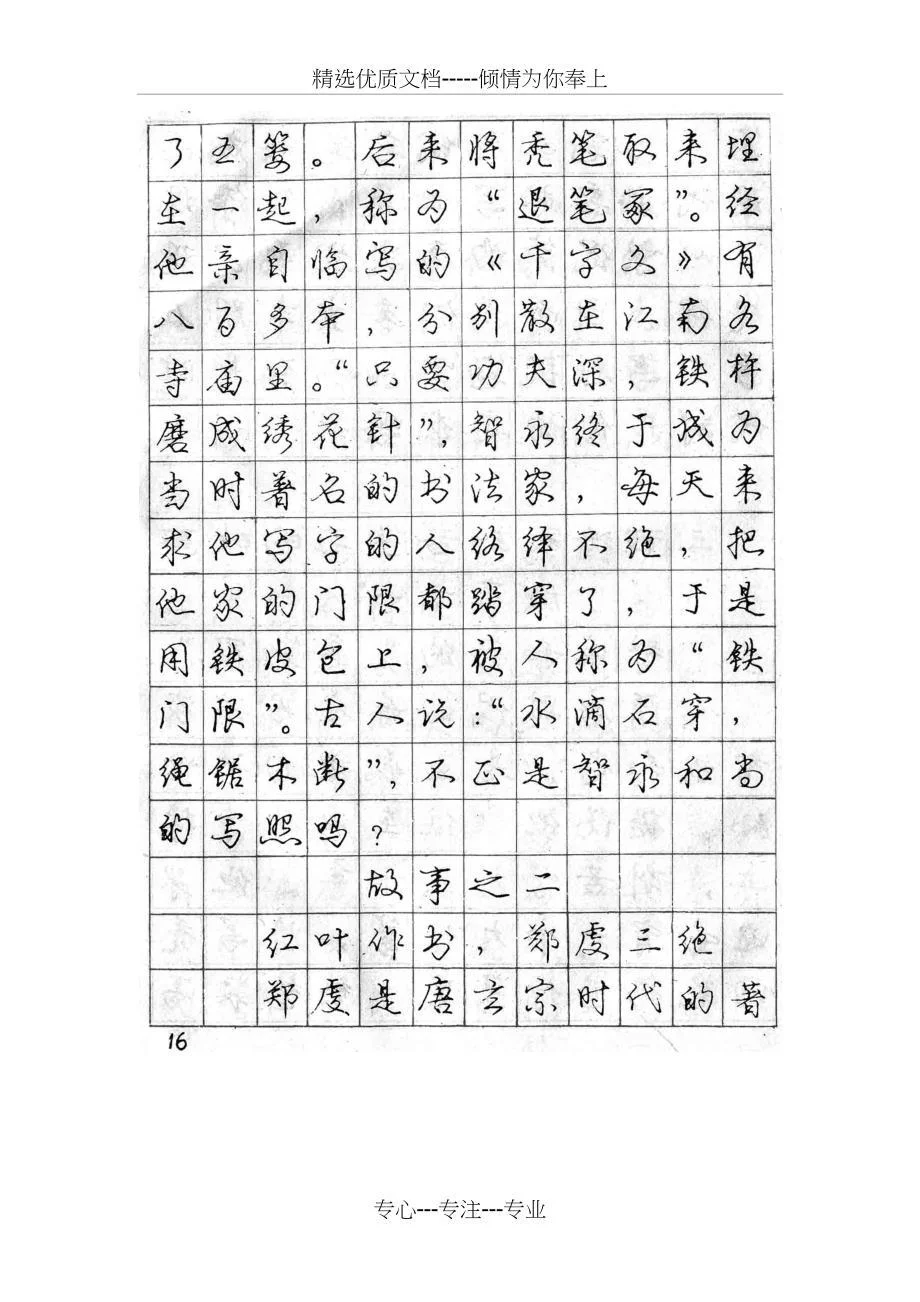 精选优质文档-----倾情为你奉上
了五篓。后来将秃笔取来埋
在一起，称为“退笔冢”。经
他亲自临写的《千字文》有
八百多本，分别散在江南各
寺庙里。“只要功夫深，铁杵
磨成绣花针”，智永终于成为
当时著名的书法家，每天来
求他写字的人络绎不绝，把
他家的门限都踏穿了，于是
用铁皮包上，被人称为“铁
门限”。古人说：“水滴石穿，
绳锯木断”，不正是智永和尚
的写照吗？
故事之二
红叶作书，郑虔三绝
郑虔是唐玄宗时代的著
16
专心---专注---专业